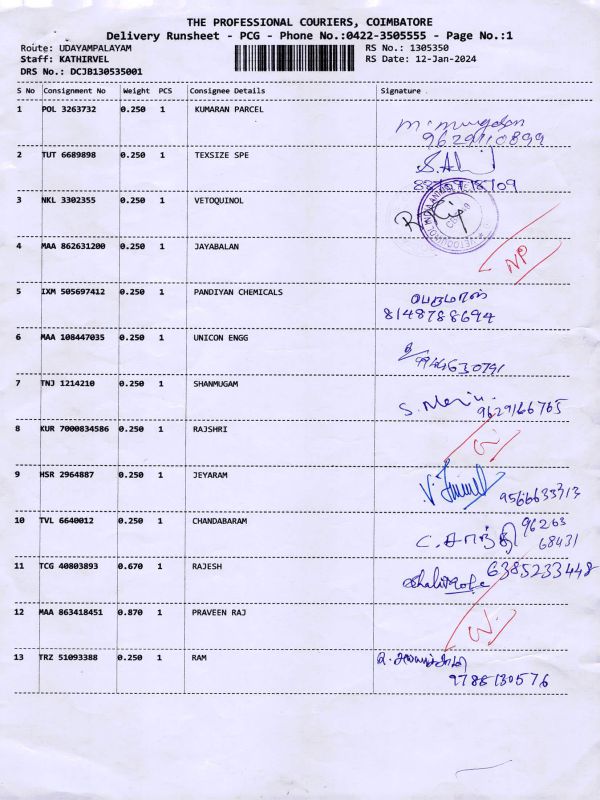 THE PROFESSIONAL COURIERS, COIMBATORE
Delivery Runsheet - PCG - Phone No.:0422-3505555 - Page No.:1
Route: UDAYAMPALAYAM RS No.: 1305350
Staff: KATHIRVEL RS Date: 12-Jan-2024
DRS No.: DCJB130535001
S No Consignment No Weight PCS Consignee Details Signature
1 POL 3263732 0.250 1 KUMARAN PARCEL
2 TUT 6689898 0.250 1 TEXSIZE SPE
3 NKL 3302355 0.250 1 VETOQUINOL
4 MAA 862631200 0.250 1 JAYABALAN
NP
5 IXM 505697412 0.250 1 PANDIYAN CHEMICALS
பெருமாள்
8148788694
6 MAA 108447035 0.250 1 UNICON ENGG
9944630791
7 TNJ 1214210 0.250 1 SHANMUGAM
9629166765
8 KUR 7000834586 0.250 1 RAJSHRI
9 HSR 2964887 0.250 1 JEYARAM
9566633713
10 TVL 6640012 0.250 1 CHANDABARAM
C. சாந்தி 96263
68431
11 TCG 40803893 0.670 1 RAJESH
6385233448
12 MAA 863418451 0.870 1 PRAVEEN RAJ
13 TRZ 51093388 0.250 1 RAM
9788130576